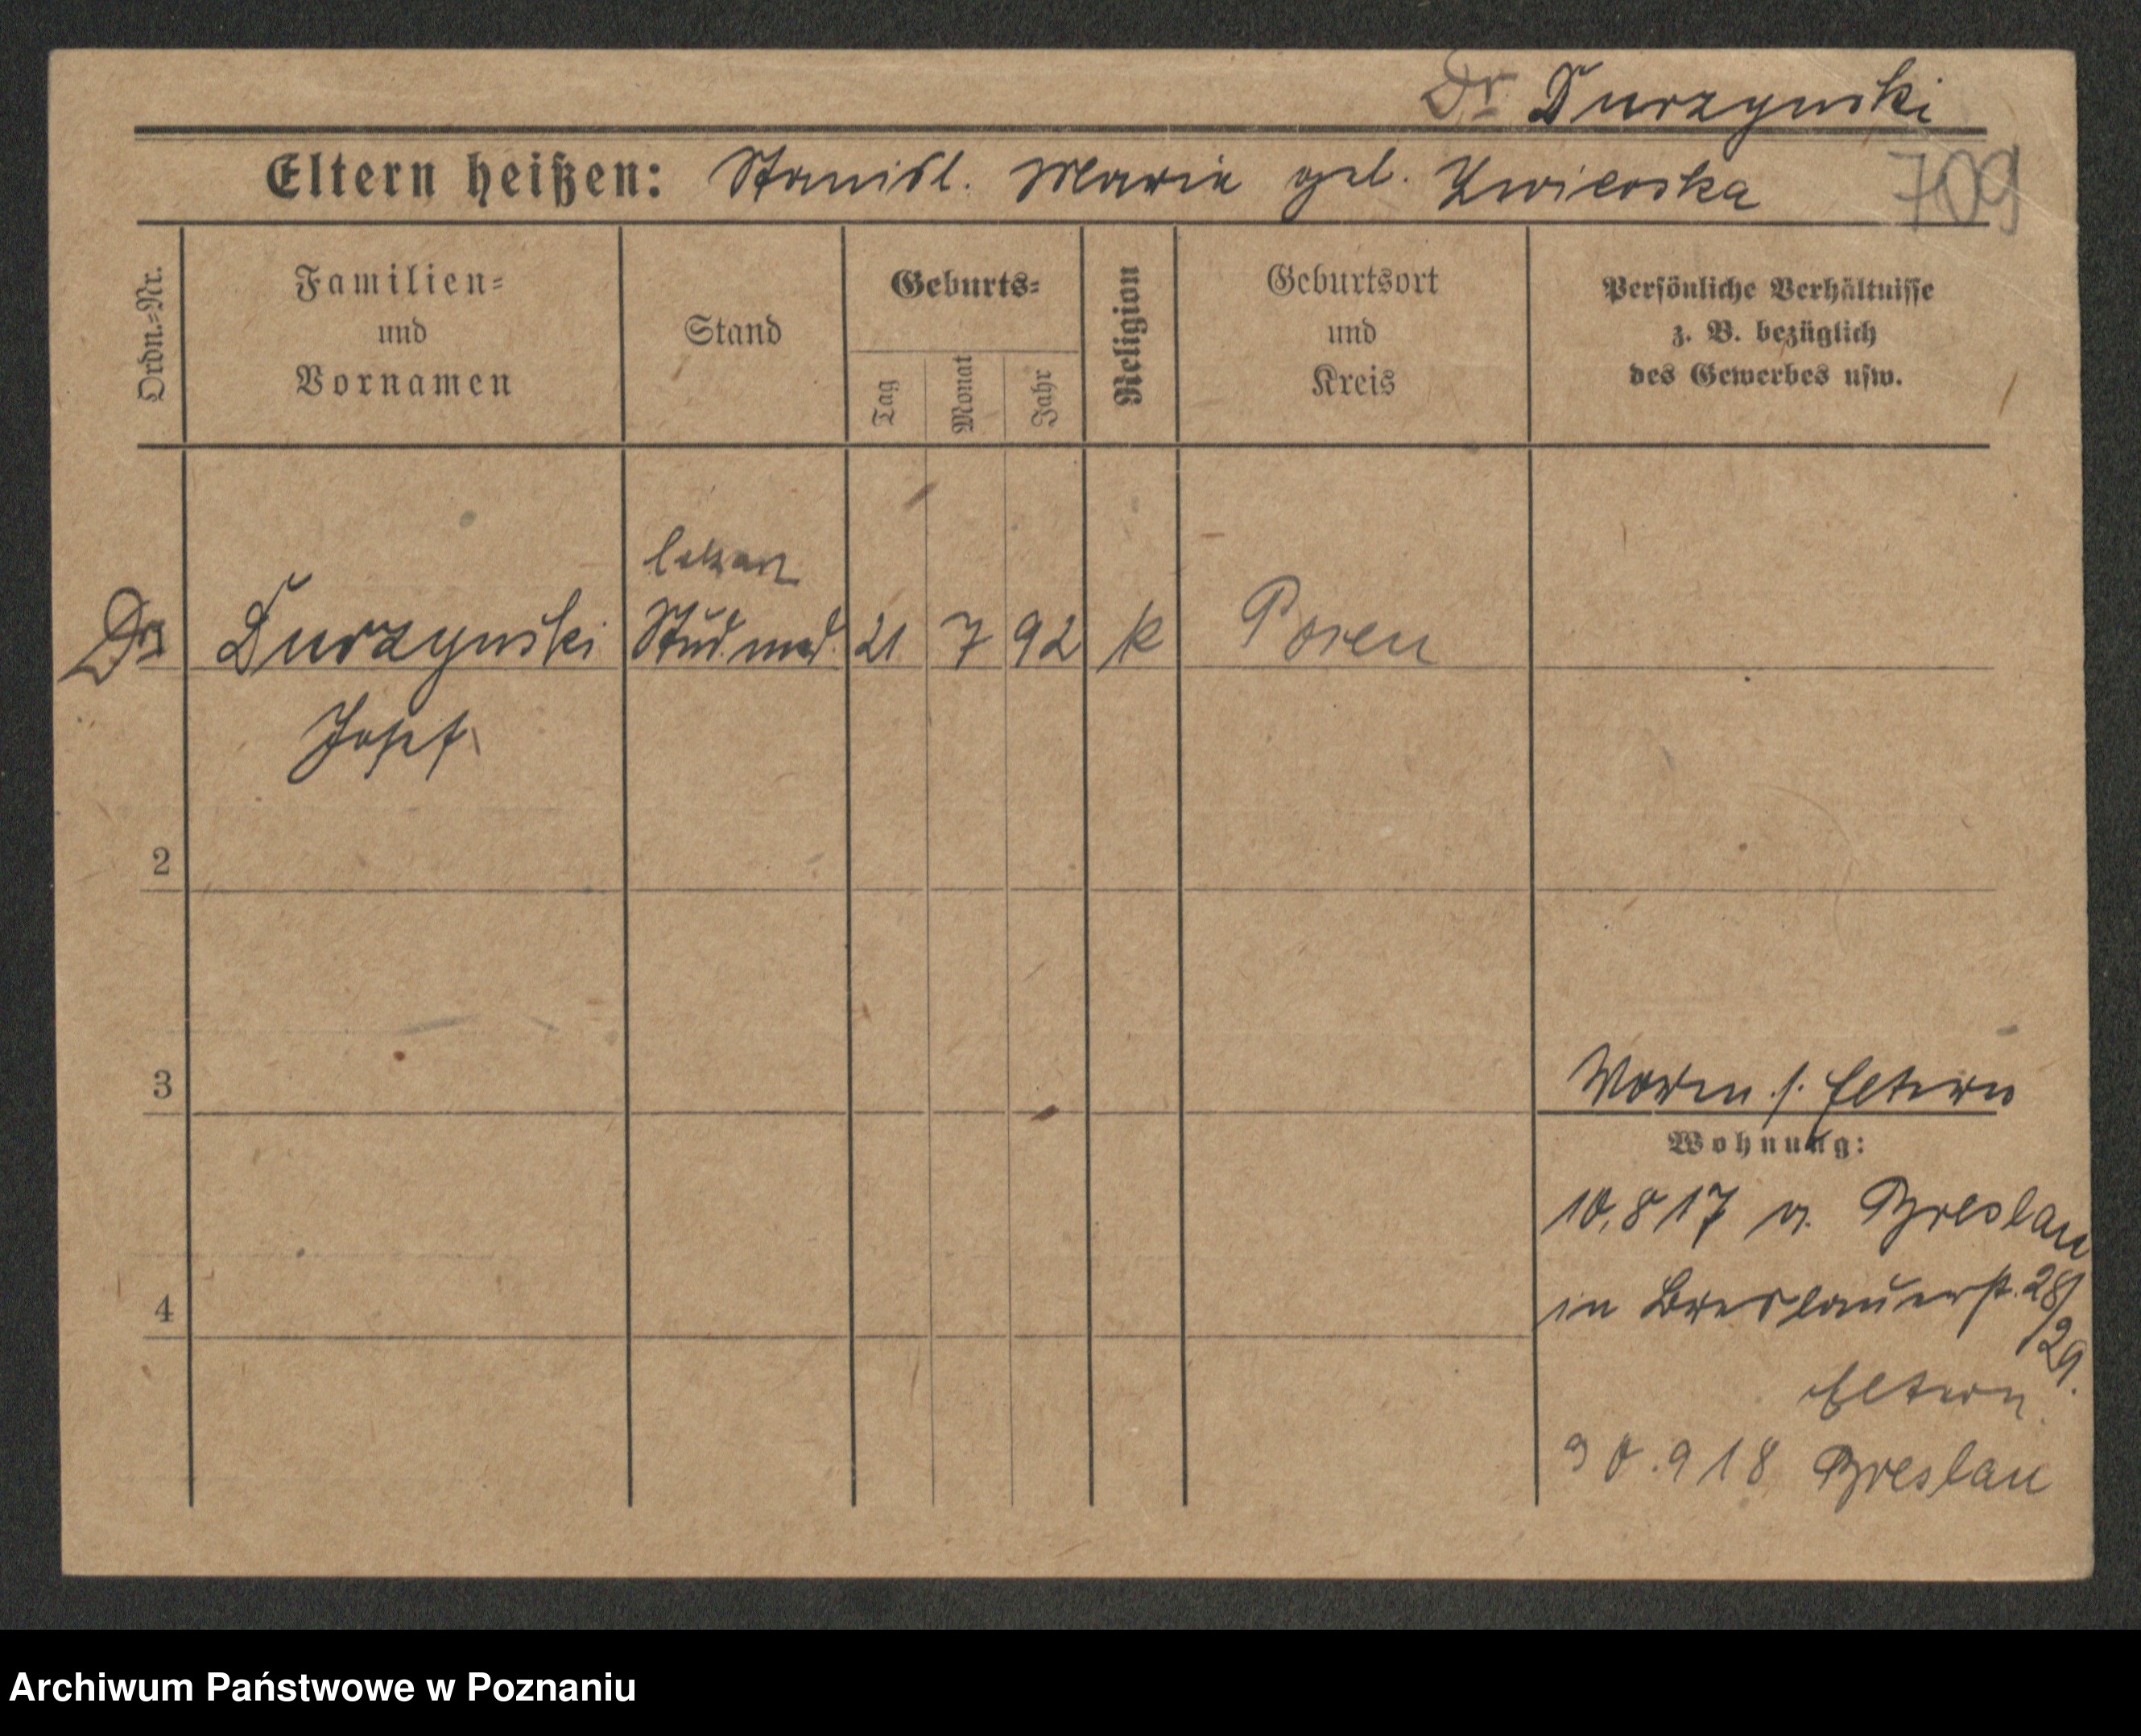 Dr Durzynski
Eltern heißen: Stanisl. Maria geb.
709
Ordn.=Nr.
Familien=
und
Vornamen
Stand
Geburts=
Tag
Monat
Jahr
Religion
Geburtsort
und
Kreis
Persönliche Verhältnisse
z. B. bezüglich
des Gewerbes usw.
lekarz
Dr Durzynski Stud. med. 21 7 92 k Posen
Josef
2
3
4
s. Eltern
Wohnung:
10.8 17 v. Breslau
in Breslauerst. 28/29.
Eltern
30.9 18 Breslau
Archiwum Państwowe w Poznaniu